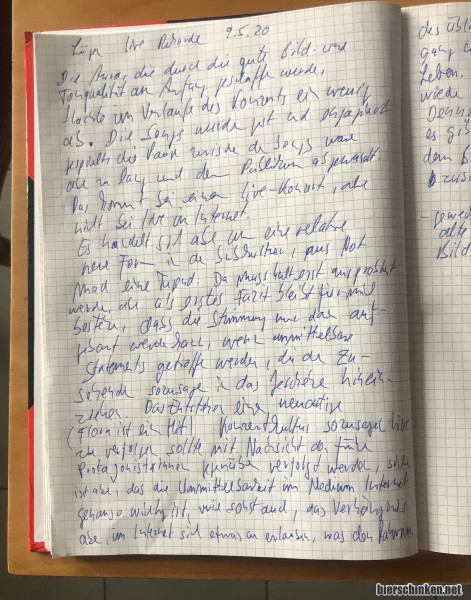 Lügen live Rekorde 9.5.20
Die Aura, die durch die gute Bild- und
Tonqualität am Anfang geschaffen wurde,
flachte im Verlaufe des Konzerts ein wenig
ab. Die Songs wurden gut und engagiert
gespielt, die Pausen zwischen den Songs waren
aber zu lang und dem Publikum abgewandt.
Das kommt bei einem live-Konzert, aber
nicht bei live im Internet.
Es handelt sich aber um eine relative
neue Form in der Subkultur, aus Not
mach eine Tugend. Da muss halt erst ausprobiert
werden, aber als erstes Fazit bleibt für mich
bestehen, dass die Stimmung nur dann auf-
gebaut werden kann, wenn unmittelbare
Statements getroffen werden, die die Zu-
sehende sozusagen in das Geschehen hinein-
ziehen. Das Entstehen einer neuartigen
(Flora ist ein Hit) Konzertkultur sozusagen live
zu verfolgen sollte mit Nachsicht den
Protagonist:innen gegenüber verfolgt werden, sicher
ist aber, das die Unmittelbarkeit im Medium Internet
genauso wichtig ist, wie sonst auch, das
aber, im Internet sich etwas zu erlauben, was den Rahmen
des übli
gang
Leben.
wiede
Denn
es gi
dem B
zusa
- gewed
alte
Bild
bierschinken.net